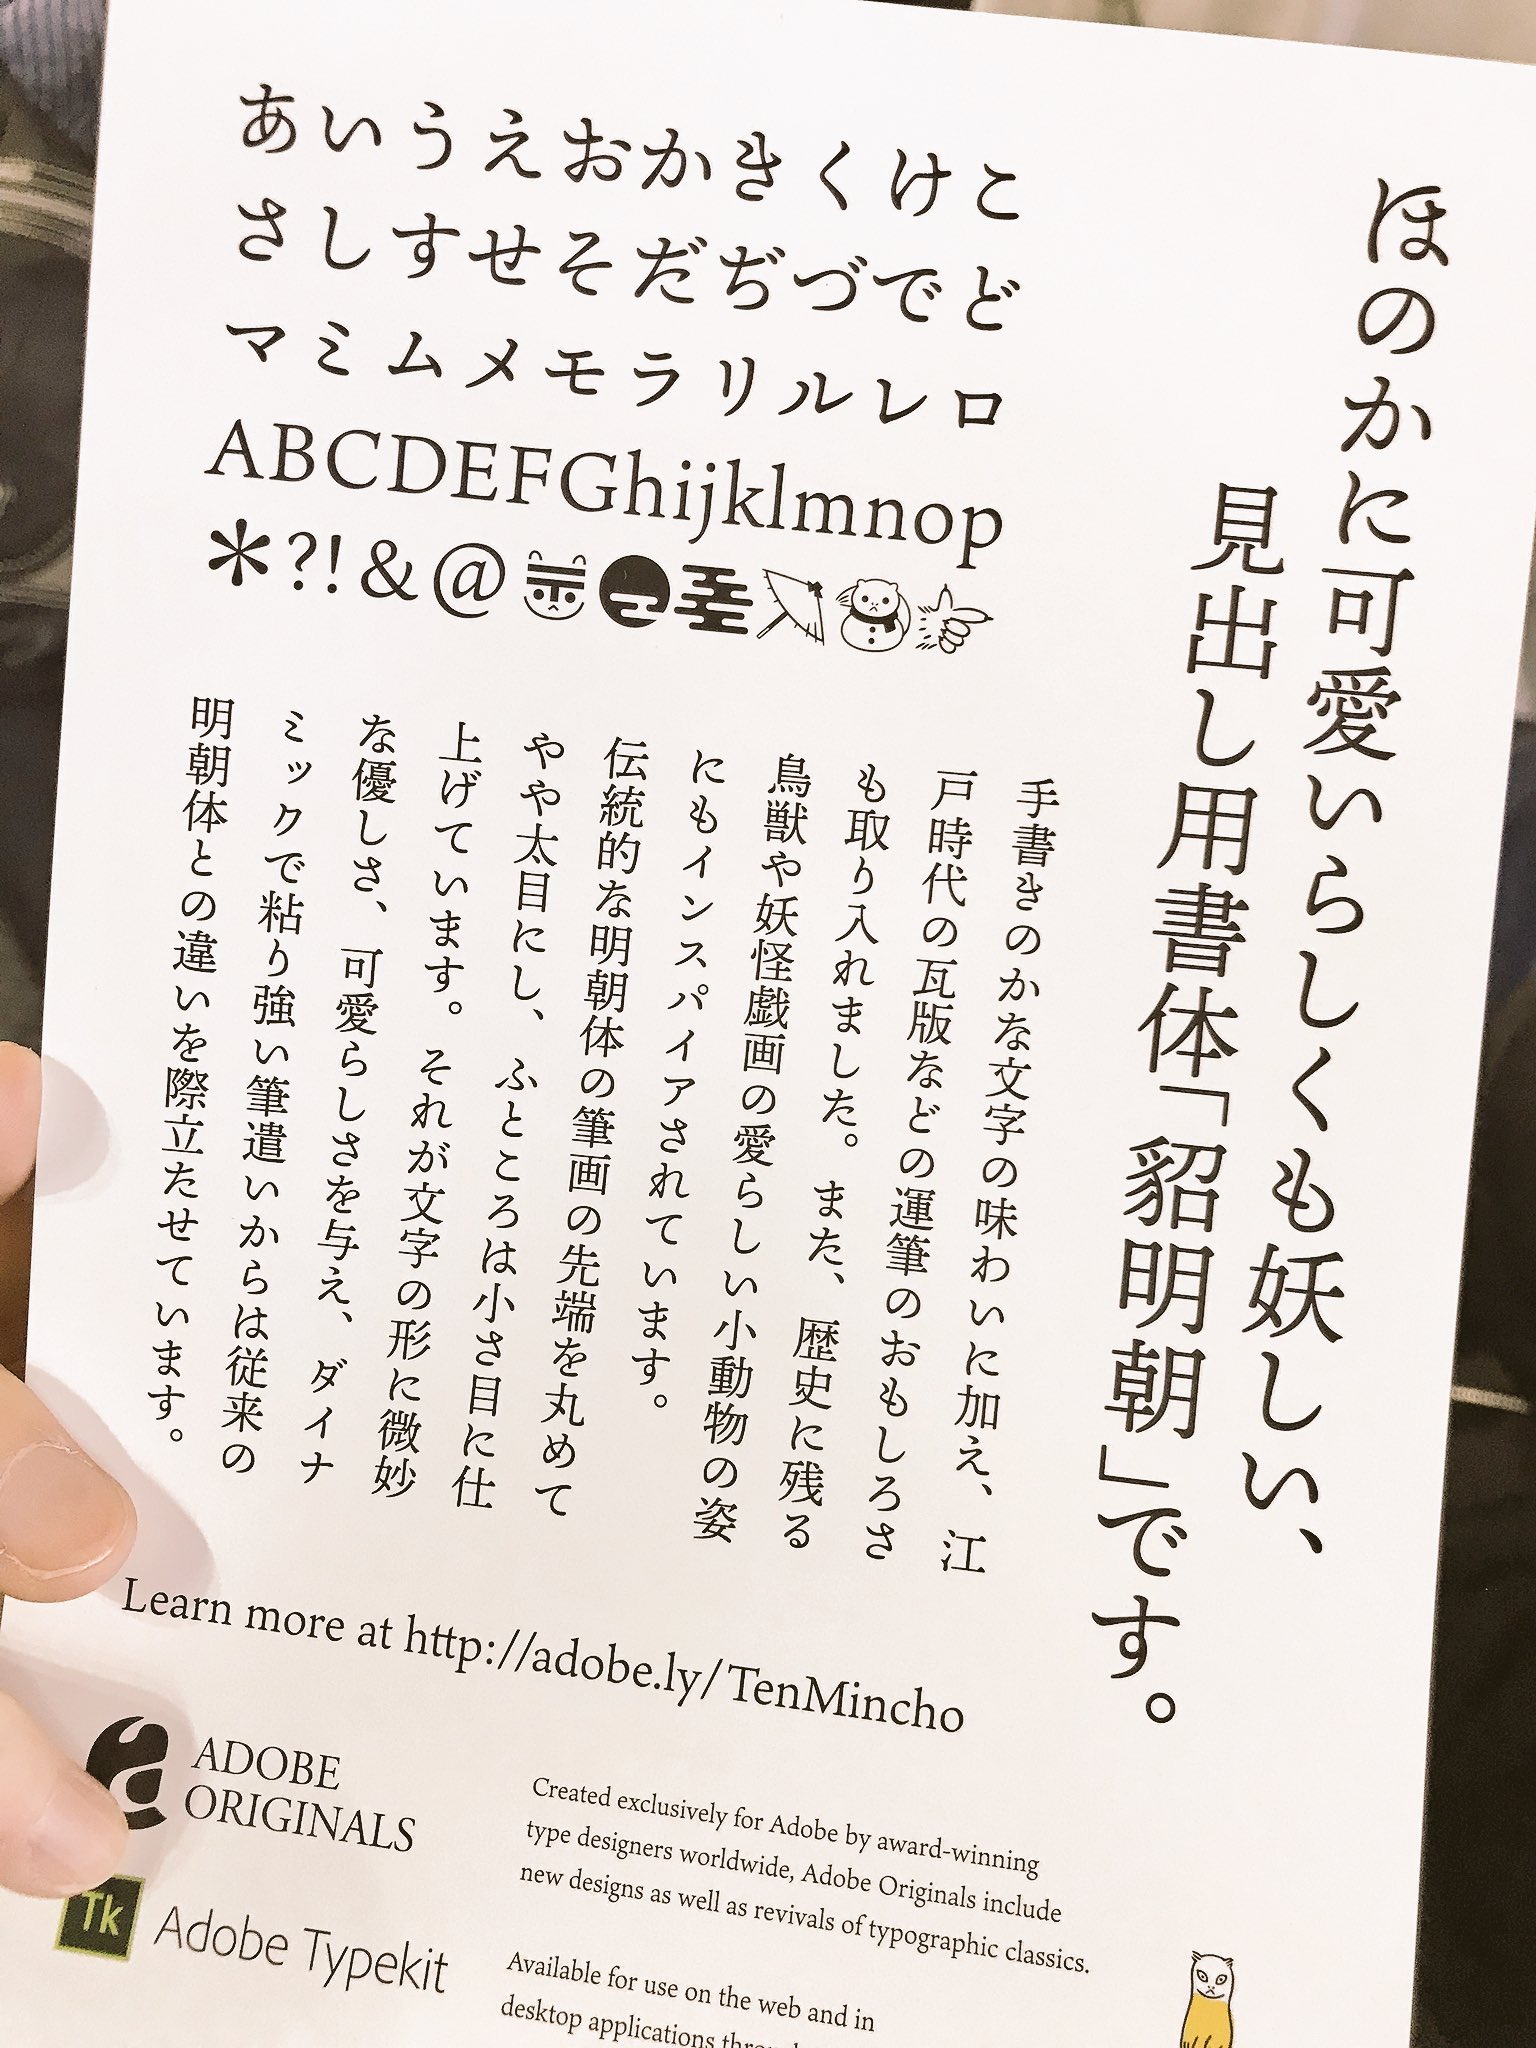 ほのかに可愛いらしくも妖しい、
見出し用書体「貂明朝」です。
あいうえおかきくけこ
さしすせそだぢづでど
マミムメモラリルレロ
ABCDEFGhijklmnop
*?!&@
手書きのかな文字の味わいに加え、江
戸時代の瓦版などの運筆のおもしろさ
も取り入れました。また、歴史に残る
鳥獣や妖怪戯画の愛らしい小動物の姿
にもインスパイアされています。
伝統的な明朝体の筆画の先端を丸めて
やや太目にし、ふところは小さ目に仕
上げています。それが文字の形に微妙
な優しさ、可愛らしさを与え、ダイナ
ミックで粘り強い筆遣いからは従来の
明朝体との違いを際立たせています。
Learn more at http://adobe.ly/TenMincho
ADOBE
ORIGINALS
Created exclusively for Adobe by award-winning
type designers worldwide, Adobe Originals include
new designs as well as revivals of typographic classics.
Tk Adobe Typekit
Available for use on the web and in
desktop applications